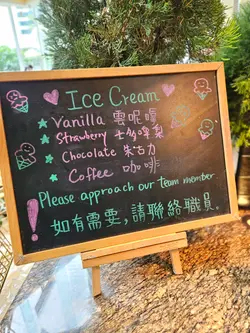 Ice Cream
Vanilla 雲呢嗱
Strawberry 士多啤梨
Chocolate 朱古力
Coffee 咖啡
Please approach our team member
如有需要,請聯絡職員。